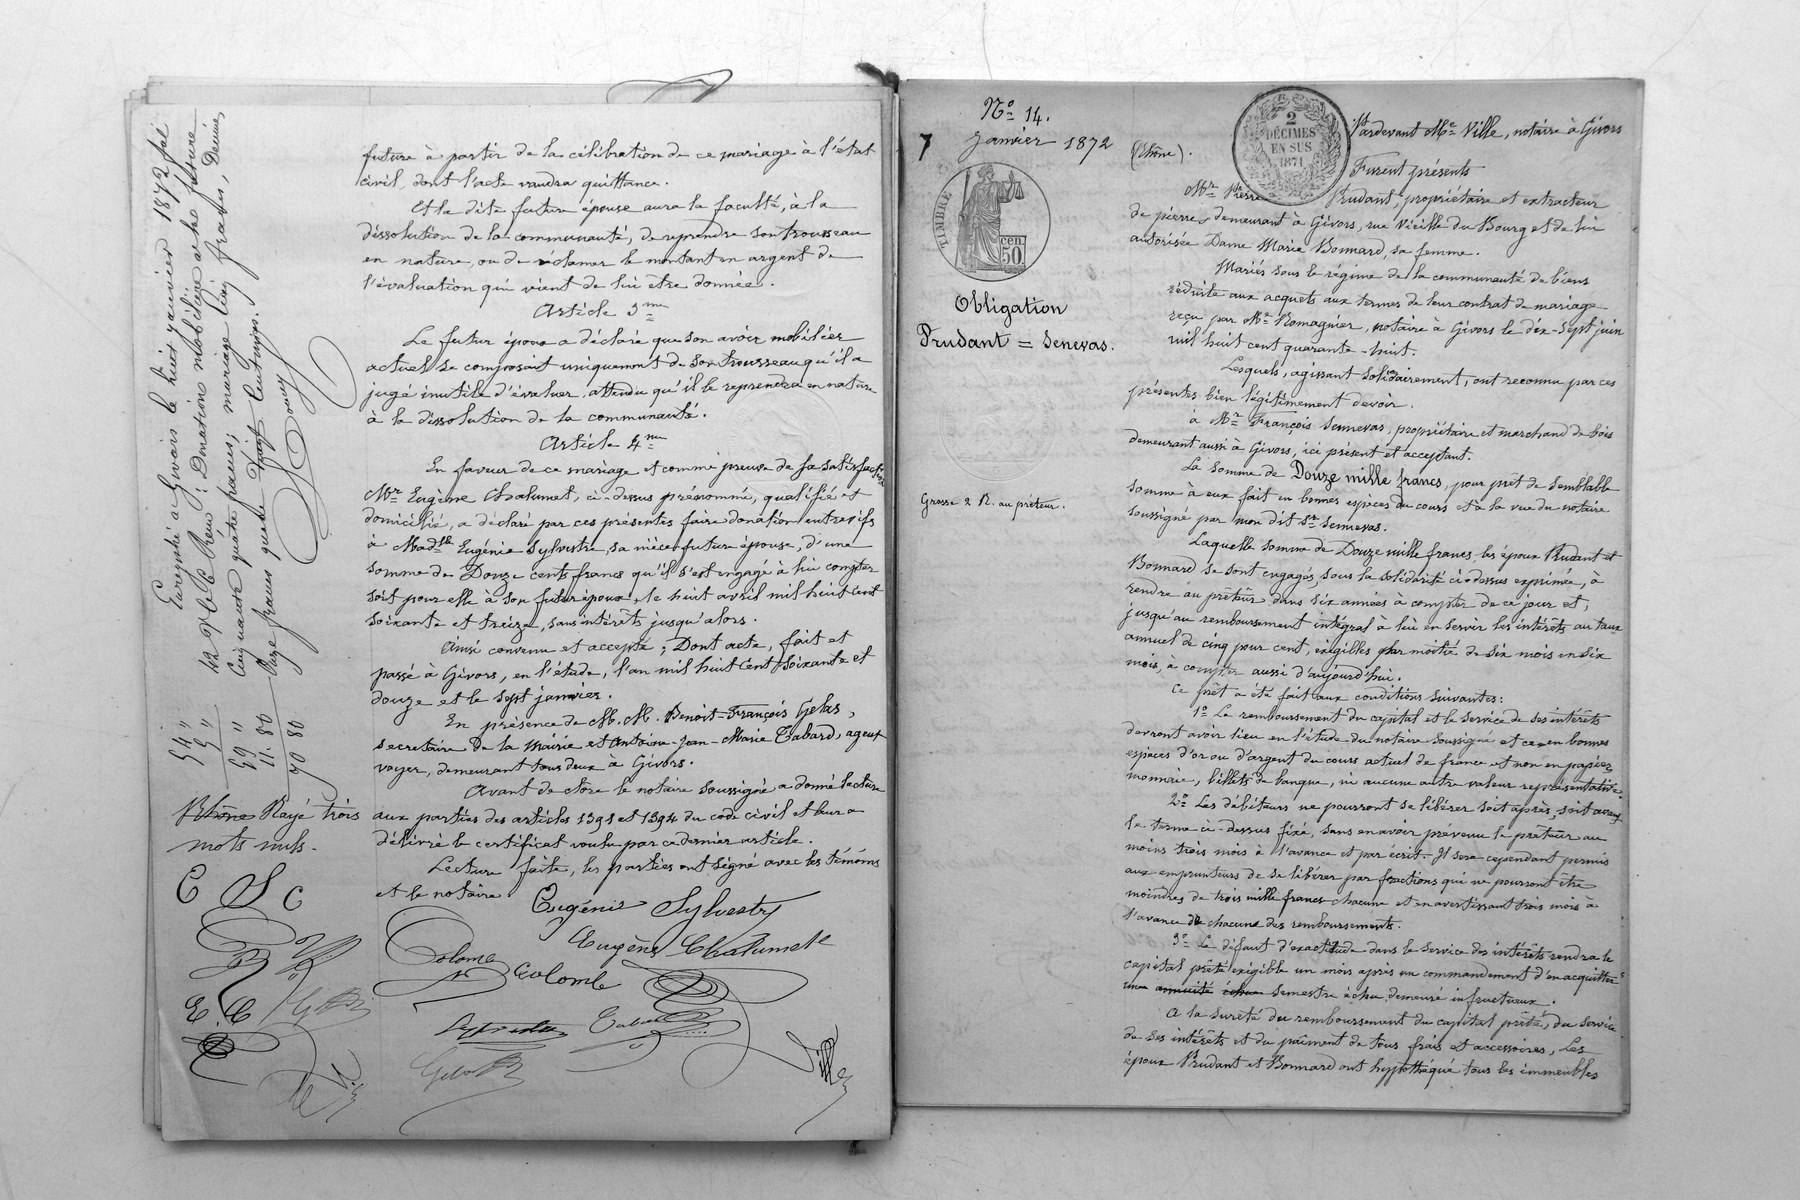 future à partir de la célébration de ce mariage à l'état
civil, dont l'acte vaudra quittance.
Et la dite future épouse aura la faculté, à la
dissolution de la communauté, de reprendre son trousseau
en nature, ou de réclamer le montant en argent de
l'évaluation qui vient de lui être donnée.
Article 3me
Le futur époux a déclaré que son avoir mobilier
actuel se composait uniquement de son trousseau qu'il a
jugé inutile d'évaluer, attendu qu'il le reprendra en nature
à la dissolution de la communauté.
Article 4me
En faveur de ce mariage et comme preuve de sa satisfaction
Mr Eugène Chalumet, ci-dessus prénommé, qualifié et
domicilié, a déclaré par ces présentes faire donation entre vifs
à Madlle Eugénie Sylvestre, sa nièce future épouse, d'une
somme de Douze cents francs qu'il s'est engagé à lui compter
soit pour elle à son futur époux, le huit avril mil huit cent
soixante et treize, sans intérêts jusqu'alors.
Ainsi convenu et accepté; Dont acte, fait et
passé à Givors, en l'étude, l'an mil huit cent soixante et
douze et le sept janvier.
En présence de M. M. Benoit-François Gelas,
secretaire de la Mairie et Antoine-Jean-Marie Tabard, agent
voyer, demeurant tous deux à Givors.
Avant de clore le notaire soussigné a donné lecture
aux parties des articles 1391 et 1394 du code civil et leur a
délivré le certificat voulu par ce dernier article.
Lecture faite, les parties ont signé avec les témoins
et le notaire.
Eugénie Sylvestre
Eugène Chalumet
Colomb
Colomb
Enregistré à Givors le huit janvier 1872 fol
Reçu: Donation mobilière à la future
Cinquante quatre francs; mariage Cinq francs, Décime
Onze francs quatre vingt centimes.
54 "
5 "
59 "
11.80
70 80
Rhône Rayé trois
mots nuls.
C S C
E. C
No 14.
7 janvier 1872
TIMBRE
50 cen.
Obligation
Prudant = Senevas.
Grosse 2 R. au prêteur.
2
DÉCIMES
EN SUS
1871
Pardevant Me Ville, notaire à Givors
(Rhône).
Furent présents
Mr Pierre Prudant, propriétaire et extracteur
de pierres demeurant à Givors, rue Vieille du Bourg et de lui
autorisée Dame Marie Bonnard, sa femme.
Mariés sous le régime de la communauté de biens
réduite aux acquets aux termes de leur contrat de mariage
reçu par Me Romagnier, notaire à Givors le dix-sept juin
mil huit cent quarante-huit.
Lesquels, agissant solidairement, ont reconnu par ces
présentes bien légitimement devoir.
à Mr François Senevas, propriétaire et marchand de bois
demeurant aussi à Givors, ici présent et acceptant.
La somme de Douze mille francs, pour prêt de semblable
somme à eux fait en bonnes espèces du cours et à la vue du notaire
soussigné par mon dit Sr Senevas.
Laquelle somme de Douze mille francs les époux Prudant et
Bonnard se sont engagés, sous la solidarité ci-dessus exprimée, à
rendre au prêteur dans six années à compter de ce jour et,
jusqu'au remboursement intégral à lui en servir les intérêts au taux
annuel de cinq pour cent, exigibles par moitié de six mois en six
mois, à compter aussi d'aujourd'hui.
Ce prêt a été fait aux conditions suivantes:
1o Le remboursement du capital et le service de ses intérêts
devront avoir lieu en l'étude du notaire soussigné et ce en bonnes
espèces d'or ou d'argent du cours actuel de france et non en papier
monnaie, billets de banque, ni aucune autre valeur représentative.
2o Les débiteurs ne pourront se libérer soit après, soit avant
le terme ci-dessus fixé, sans en avoir prévenu le prêteur au
moins trois mois à l'avance et par écrit. Il sera cependant permis
aux emprunteurs de se libérer par fractions qui ne pourront être
moindres de trois mille francs chacune et en avertissant trois mois à
l'avance de chacune des remboursements.
3o Le défaut d'exactitude dans le service des intérêts rendra le
capital prêté exigible un mois après un commandement d'en acquitter
une annuité échue semestre échu demeuré infructueux.
A la sureté du remboursement du capital prêté, du service
de ses intérêts et du paiment de tous frais et accessoires, Les
époux Prudant et Bonnard ont hypothéqué tous les immeubles